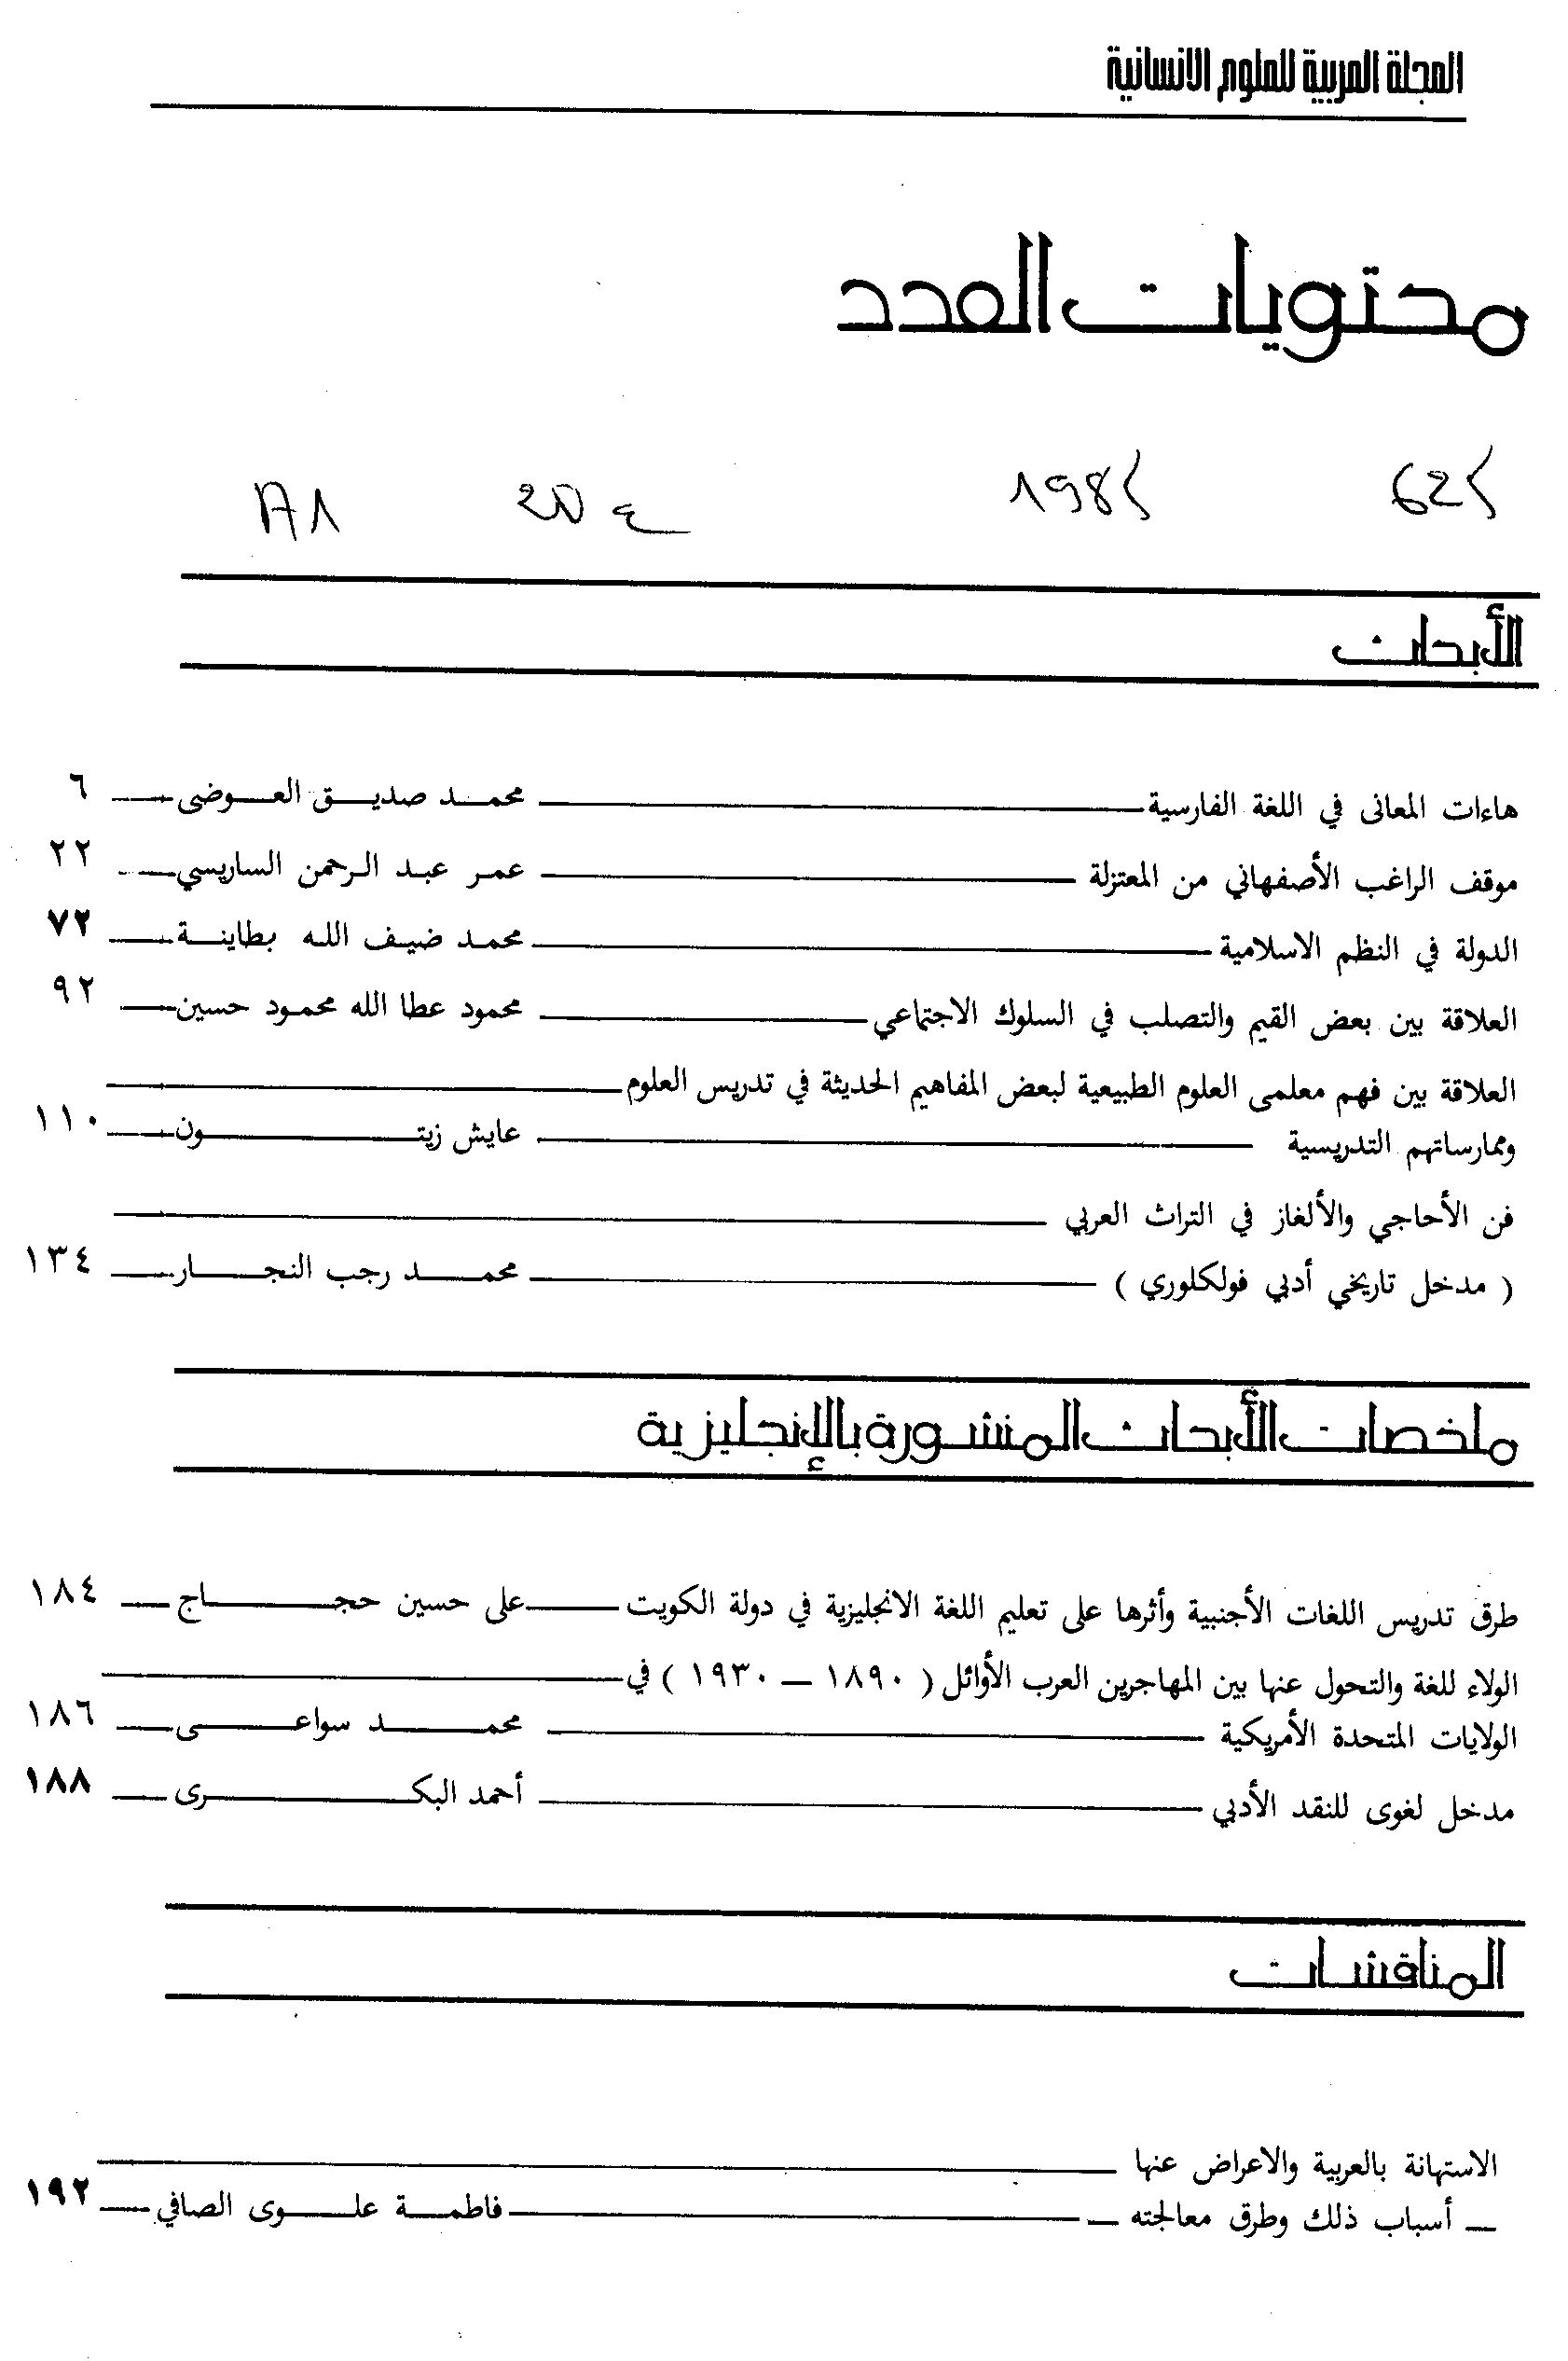 المجلة العربية للعلوم الانسانية
محتويات العدد
الأبحاث
هاءات المعانى في اللغة الفارسية محمد صديق العوضى ٦
موقف الراغب الأصفهاني من المعتزلة عمر عبد الرحمن الساريسي ٢٢
الدولة في النظم الاسلامية محمد ضيف الله بطاينة ٧٢
العلاقة بين بعض القيم والتصلب في السلوك الاجتماعي محمود عطا الله محمود حسين ٩٢
العلاقة بين فهم معلمى العلوم الطبيعية لبعض المفاهيم الحديثة في تدريس العلوم
وممارساتهم التدريسية عايش زيتون ١١٠
فن الأحاجي والألغاز في التراث العربي
( مدخل تاريخي أدبي فولكلوري ) محمد رجب النجار ١٣٤
ملخصات الأبحاث المنشورة بالإنجليزية
طرق تدريس اللغات الأجنبية وأثرها على تعليم اللغة الانجليزية في دولة الكويت على حسين حجاج ١٨٤
الولاء للغة والتحول عنها بين المهاجرين العرب الأوائل ( ١٨٩٠ – ١٩٣٠ ) في
الولايات المتحدة الأمريكية محمد سواعى ١٨٦
مدخل لغوى للنقد الأدبي أحمد البكرى ١٨٨
المناقشات
الاستهانة بالعربية والاعراض عنها
– أسباب ذلك وطرق معالجته – فاطمة علوى الصافي ١٩٢